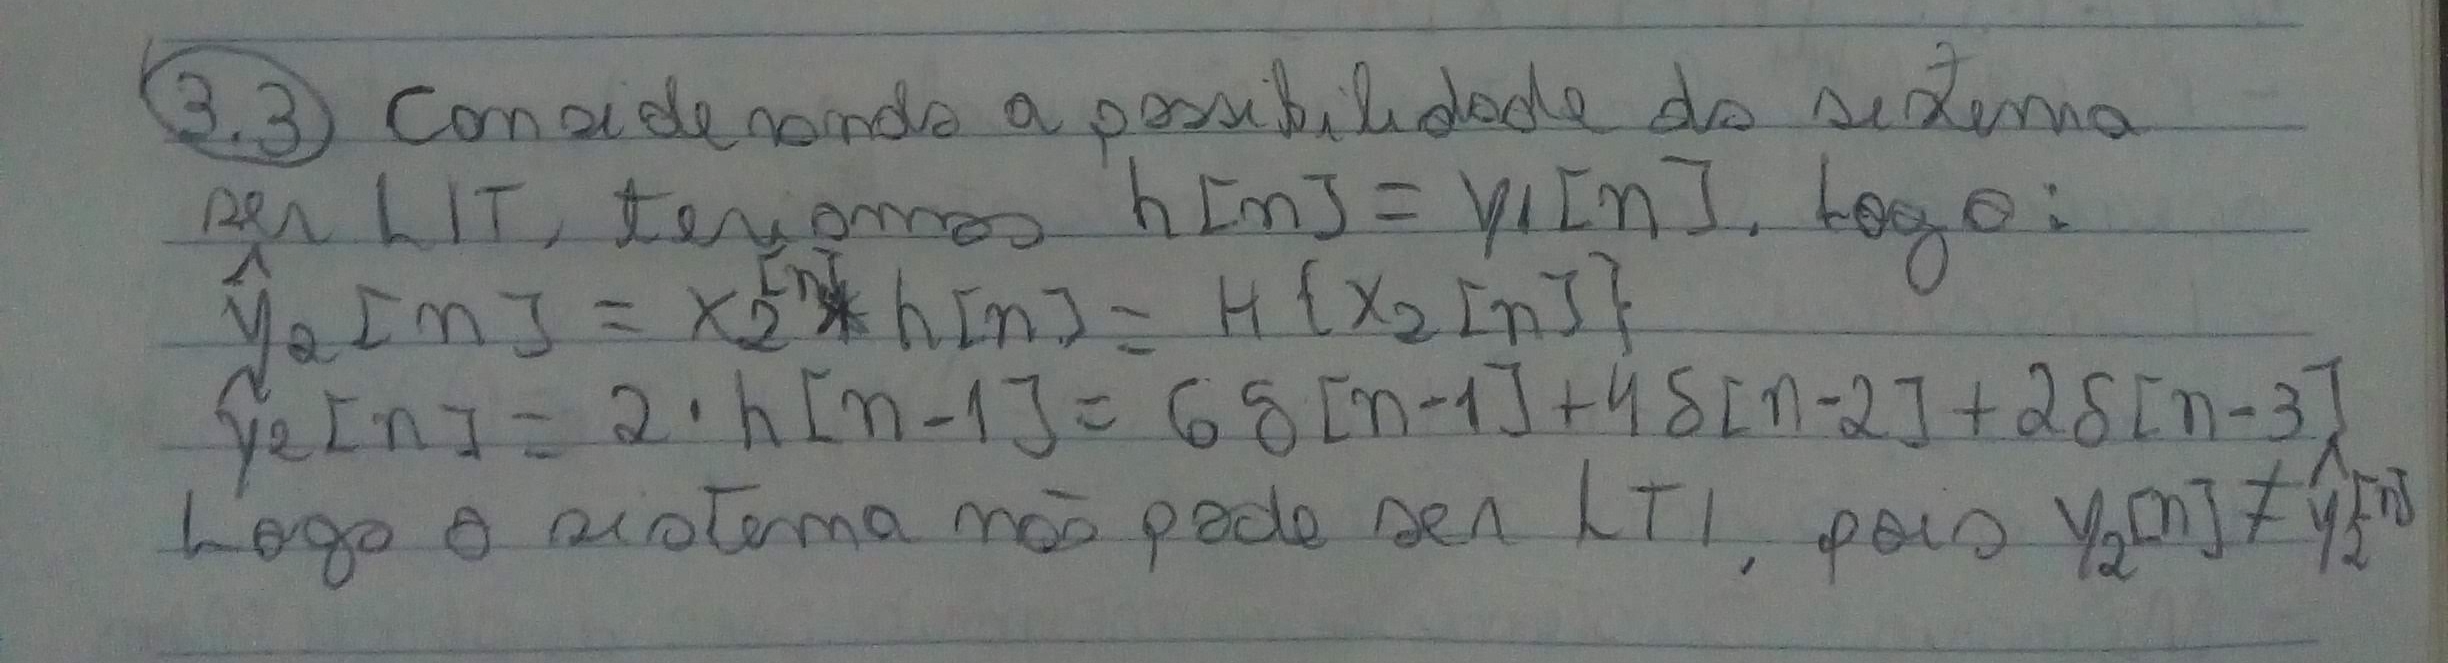 3.3 Considerando a possibilidade do sistema
ser LIT, teríamos h[n] = y1[n]. Logo:
ŷ2[n] = x2[n] * h[n] = H{x2[n]}
ŷ2[n] = 2·h[n-1] = 6δ[n-1]+4δ[n-2]+2δ[n-3]
Logo o sistema não pode ser LTI, pois y2[n] ≠ ŷ2[n]